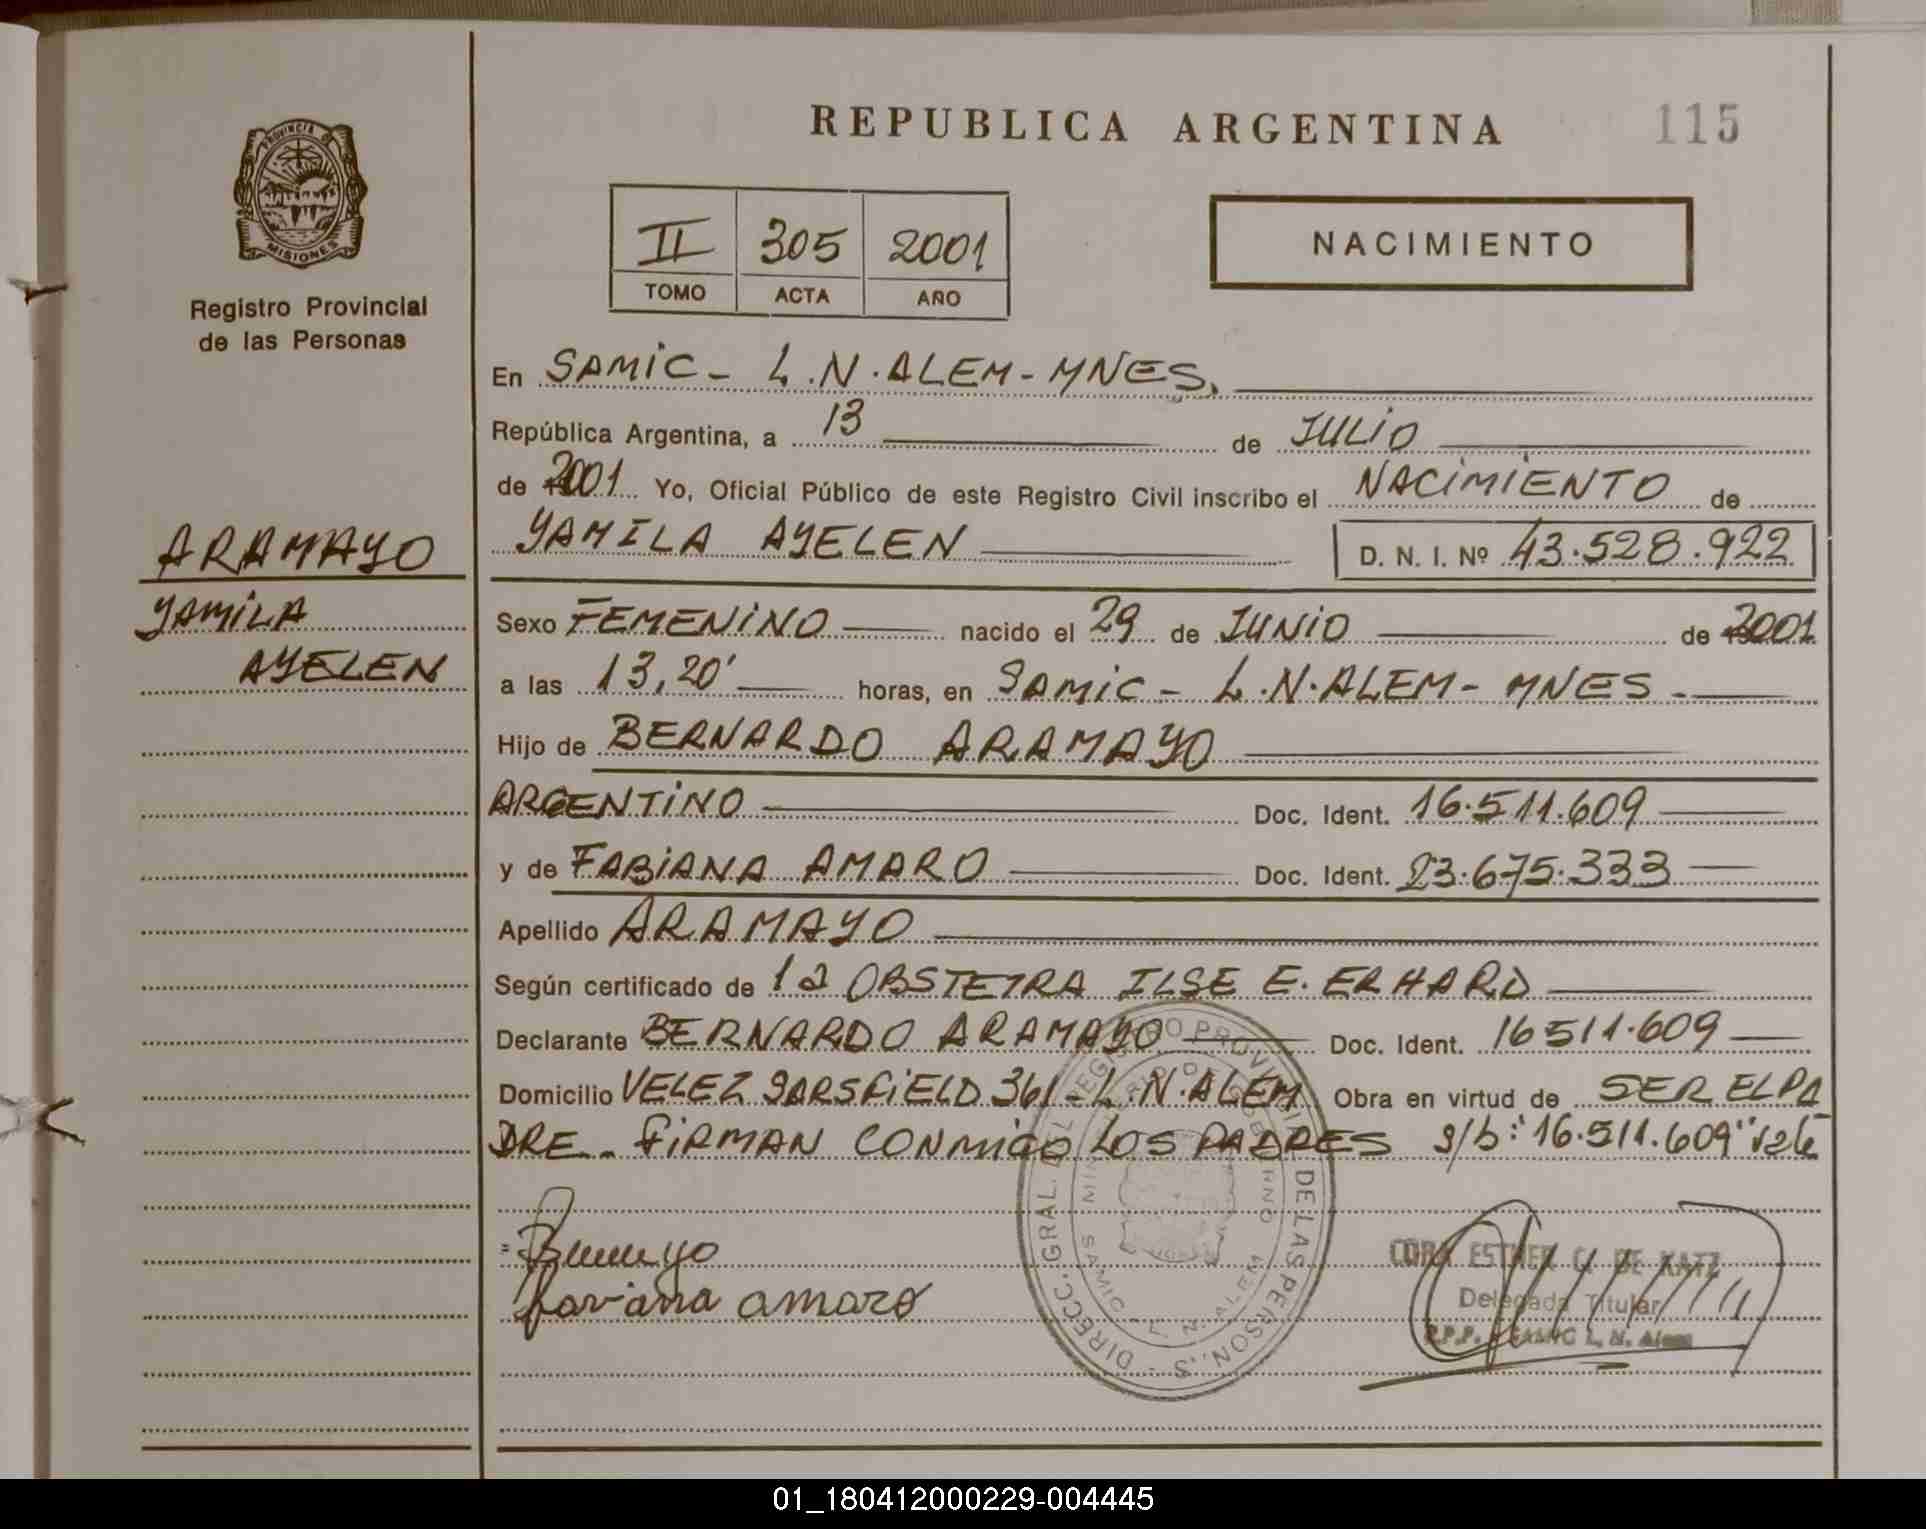 REPUBLICA ARGENTINA 115
PROVINCIA DE
MISIONES
Registro Provincial
de las Personas
II 305 2001
TOMO ACTA AÑO
NACIMIENTO
En SAMIC - L.N. ALEM - MNES.
República Argentina, a 13 de JULIO
de 2001 Yo, Oficial Público de este Registro Civil inscribo el NACIMIENTO de
YAMILA AYELEN D. N. I. Nº 43.528.922
ARAMAYO
YAMILA
AYELEN
Sexo FEMENINO nacido el 29 de JUNIO de 2001
a las 13,20' horas, en SAMIC - L.N. ALEM - MNES -
Hijo de BERNARDO ARAMAYO
ARGENTINO Doc. Ident. 16.511.609
y de FABIANA AMARO Doc. Ident. 23.675.333
Apellido ARAMAYO
Según certificado de la OBSTETRA ILSE E. ERHARD
Declarante BERNARDO ARAMAYO Doc. Ident. 16511.609
Domicilio VELEZ SARSFIELD 361 - L.N. ALEM Obra en virtud de SER EL PA
DRE - FIRMAN CONMIGO LOS PADRES s/b: "16.511.609" vale
DIRECC. GRAL. DEL REGISTRO PROVINCIAL DE LAS PERSONAS
MINISTERIO DE GOBIERNO
SAMIC - L. N. ALEM
amaro
CORA ESTHER G. DE KATZ
Delegada Titular
R.P.P. SAMIC L. N. Alem
01_180412000229-004445